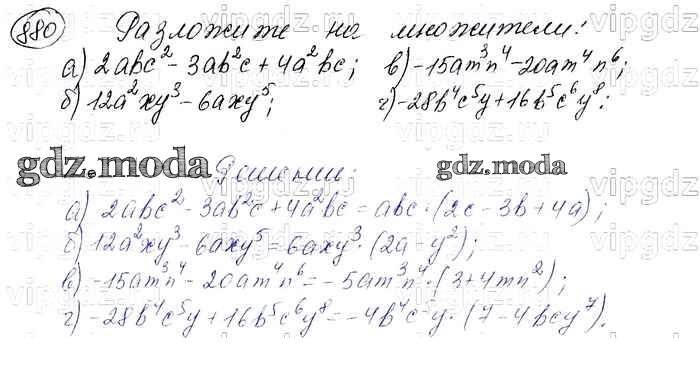 880 Разложите на множители:
а) 2abc² - 3ab²c + 4a²bc; в) -15am³n⁴ - 20am⁴n⁶;
б) 12a²xy³ - 6axy⁵; г) -28b⁴c⁵y + 16b⁵c⁶y⁸.
gdz.moda Решении: gdz.moda
а) 2abc² - 3ab²c + 4a²bc = abc · (2c - 3b + 4a);
б) 12a²xy³ - 6axy⁵ = 6axy³ · (2a - y²);
в) -15am³n⁴ - 20am⁴n⁶ = -5am³n⁴ · (3 + 4mn²);
г) -28b⁴c⁵y + 16b⁵c⁶y⁸ = -4b⁴c⁵y · (7 - 4bcy⁷).